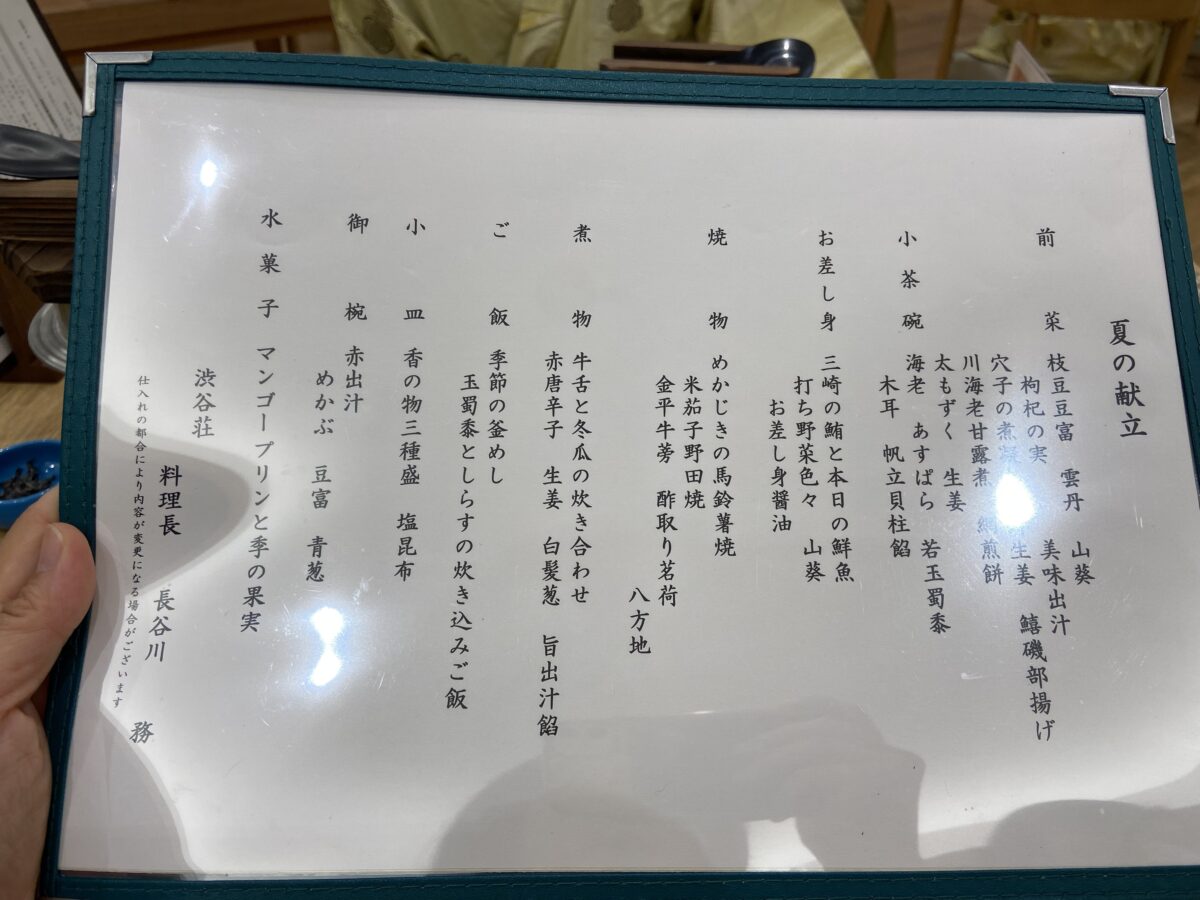 夏の献立
前菜 枝豆豆富 雲丹 山葵
枸杞の実 美味出汁
穴子の煮 生姜 鱚磯部揚げ
川海老甘露煮 煎餅
太もずく 生姜
小茶碗 海老 あすぱら 若玉蜀黍
木耳 帆立貝柱餡
お差し身 三崎の鮪と本日の鮮魚
打ち野菜色々 山葵
お差し身醤油
焼物 めかじきの馬鈴薯焼
米茄子野田焼
金平牛蒡 酢取り茗荷
八方地
煮物 牛舌と冬瓜の炊き合わせ
赤唐辛子 生姜 白髪葱 旨出汁餡
ご飯 季節の釜めし
玉蜀黍としらすの炊き込みご飯
小皿 香の物三種盛 塩昆布
御椀 赤出汁
めかぶ 豆富 青葱
水菓子 マンゴープリンと季の果実
渋谷荘
料理長 長谷川 務
仕入れの都合により内容が変更になる場合がございます